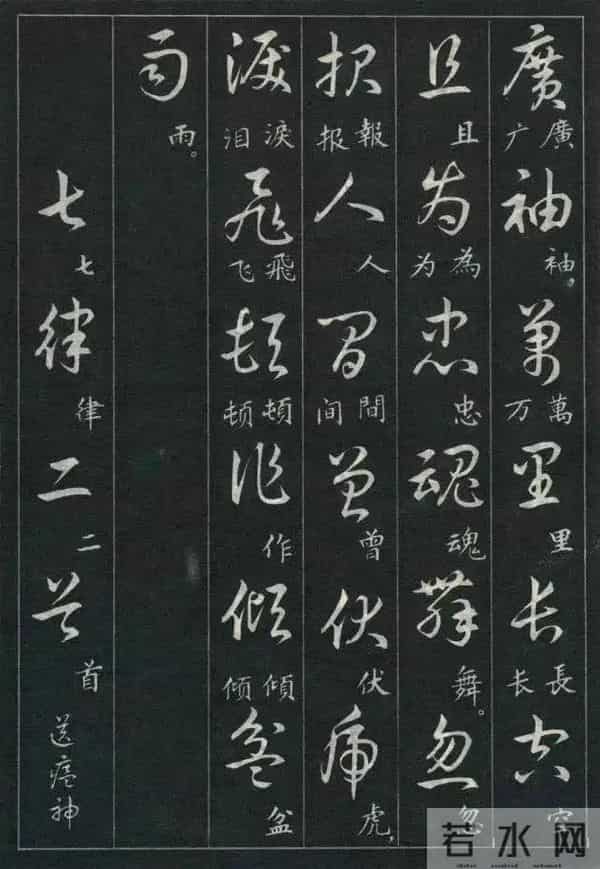 廣袖萬里長空
廣广袖。萬万里長长空
且為忠魂舞忽
且為为忠魂舞。忽
報人間曾伏虎
報报人間间曾伏虎,
淚飛頓作傾盆
淚泪飛飞頓顿作傾倾盆
雨
雨。
七律二首
七律二首送瘟神
若水网